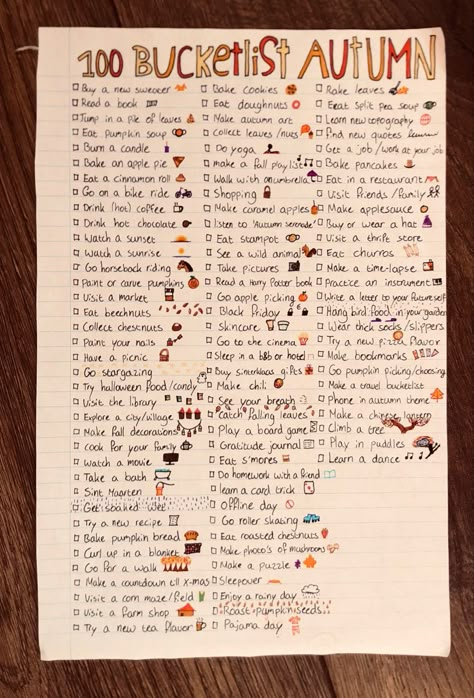 100 BUCKETLIST AUTUMN
Buy a new sweater
Read a book
Jump in a pile of leaves
Eat pumpkin soup
Burn a candle
Bake an apple pie
Eat a cinnamon roll
Go on a bike ride
Drink (hot) coffee
Drink hot chocolate
Watch a sunset
Watch a sunrise
Go horseback riding
Paint or carve pumpkins
Visit a market
Eat beechnuts
Collect chestnuts
Paint your nails
Have a picnic
Go stargazing
Try halloween food/candy
Visit the library
Explore a city/village
Make fall decorations
Cook for your family
Watch a movie
Take a bath
Sint Maarten
Get soaked wet
Try a new recipe
Bake pumpkin bread
Curl up in a blanket
Go for a walk
Make a countdown till x-mas
Visit a corn maze/field
Visit a farm shop
Try a new tea flavor
Bake cookies
Eat doughnuts
Make autumn art
Collect leaves/nuts
Do yoga
make a fall playlist
Walk with an umbrella
Shopping
Make caramel apples
listen to 'Autumn serenade'
Eat stampot
See a wild animal
Take pictures
Read a Harry Potter book
Go apple picking
Black Friday
Skincare
Go to the cinema
Sleep in a b&b or hotel
Buy sinterklaas gifts
Make chili
See your breath
Catch falling leaves
Play a board game
Gratitude journal
Eat s'mores
Do homework with a friend
learn a card trick
Offline day
Go roller skating
Eat roasted chestnuts
Make photo's of mushrooms
Make a puzzle
Sleepover
Enjoy a rainy day
Roast pumpkinseeds
Pajama day
Rake leaves
Eeat Split pea soup
Learn new topography
Find new quotes
Get a job/work at your job
Bake pancakes
Eat in a restaurant
Visit friends/family
Make applesauce
Buy or wear a hat
Visit a thrift store
Eat churros
Make a time-lapse
Practice an instrument
Write a letter to your future self
Hang bird food in your garden
Wear thick socks/slippers
Try a new pizza flavor
Make bookmarks
Go pumpkin picking/choosing
Make a travel bucketlist
Phone in autumn theme
Make a chinese lantern
Climb a tree
Play in puddles
Learn a dance